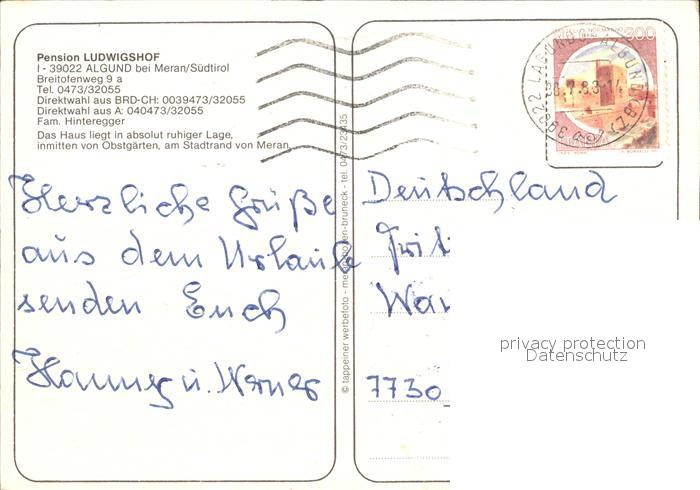 Pension LUDWIGSHOF
I - 39022 ALGUND bei Meran/Südtirol
Breitofenweg 9 a
Tel. 0473/32055
Direktwahl aus BRD-CH: 0039473/32055
Direktwahl aus A: 040473/32055
Fam. Hinteregger
Das Haus liegt in absolut ruhiger Lage,
inmitten von Obstgärten, am Stadtrand von Meran.
Herzliche Grüße
aus dem Urlaub
senden Euch
Hannes u. Werner
© tappeiner werbefoto - meran-bozen-bruneck - tel. 0473/23435
300
39022 LAGUNDO - ALGUND (BZ)
Deutschland
Frit
War
7730
privacy protection
Datenschutz